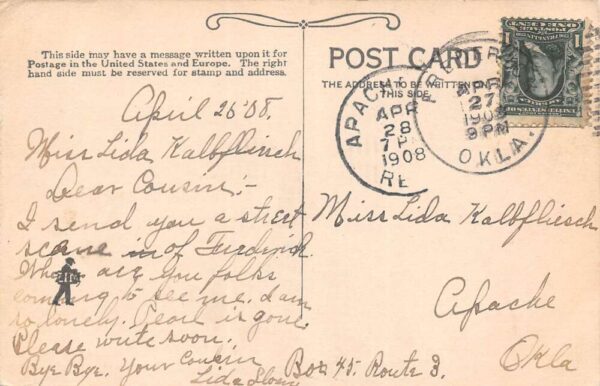 This side may have a message written upon it for
Postage in the United States and Europe. The right
hand side must be reserved for stamp and address.
POST CARD
THE ADDRESS TO BE WRITTEN ON
THIS SIDE
1
APR
27
1908
9 PM
OKLA.
APACHE
APR
28
7 P
1908
RE
April 26'08.
Miss Lida Kalbfliesch
Dear Cousin:-
I send you a street
scene in of Fredrick.
When are you folks
coming to see me. I am
so lonely. Pearl is gone.
Please write soon.
Bye Bye. Your Cousin
Lida
Miss Lida Kalbfliesch
Apache
Okla
Box 45. Route 3.